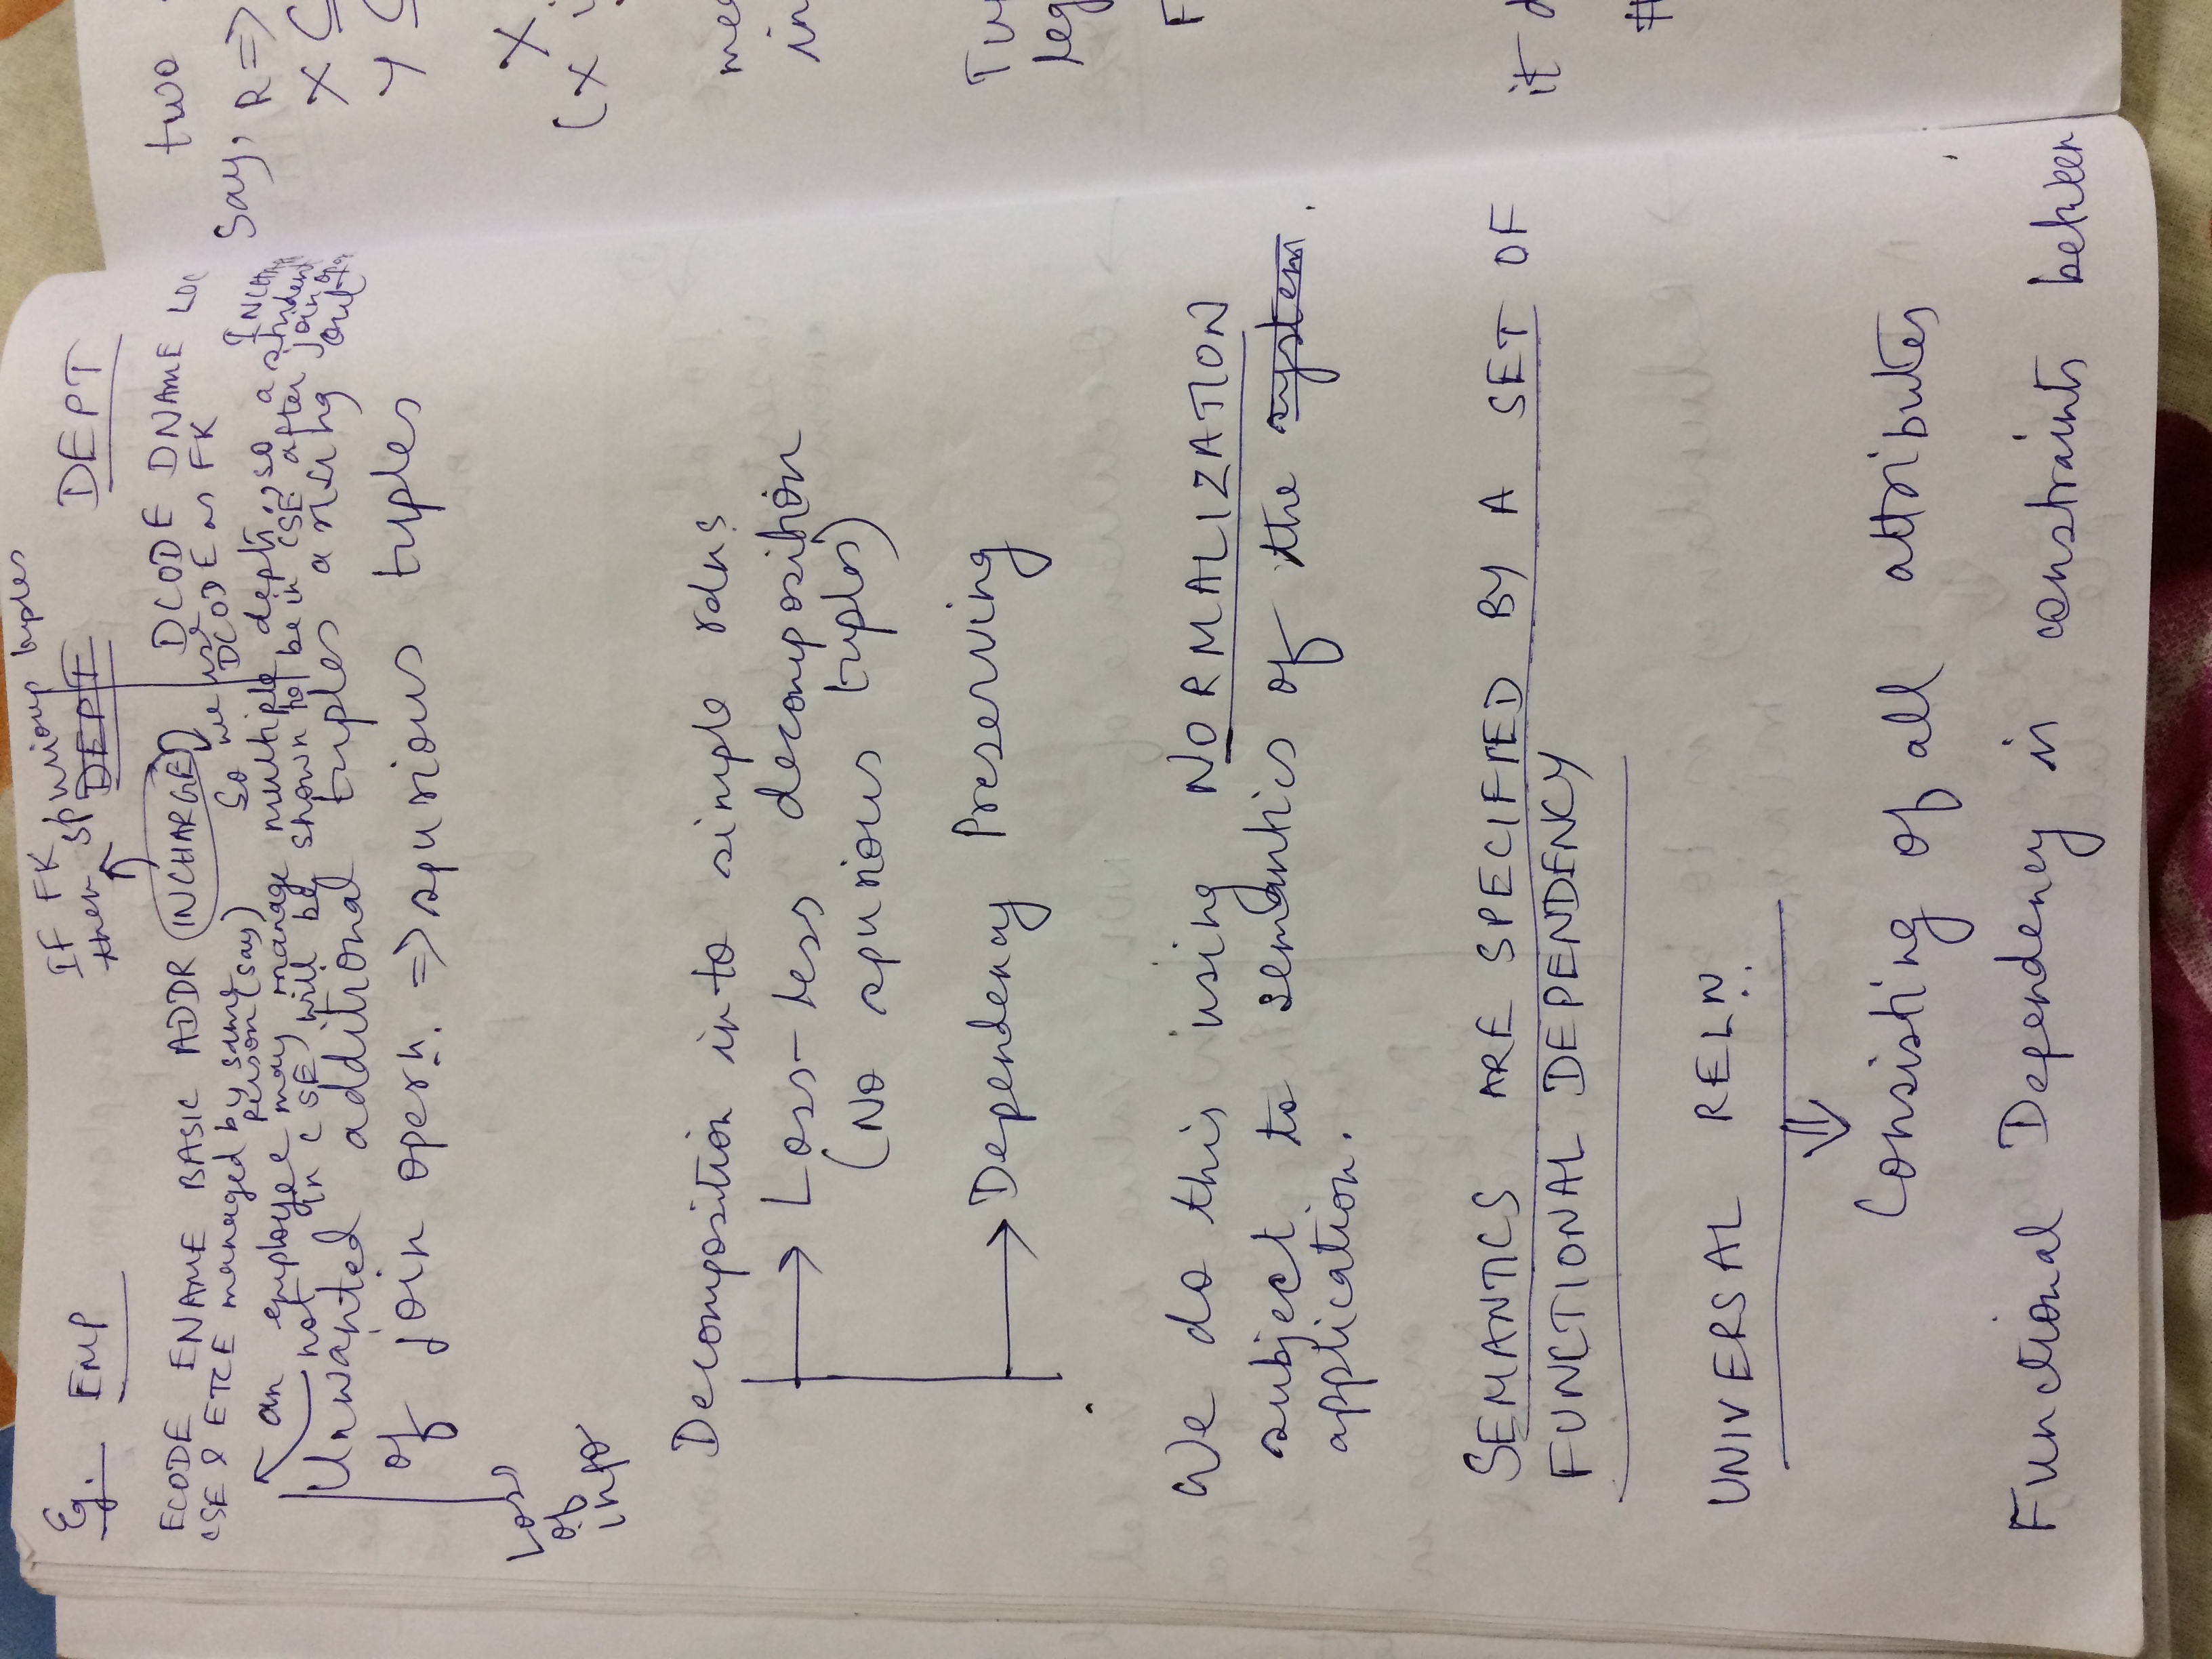 Eg. EMP
IF FK
then spurious tuples
DEPT
DEPT
ECODE ENAME BASIC ADDR INCHARGE
DCODE DNAME LOC
INCH
CSE & ETCE managed by same
person (say)
So we use
DCODE as FK
an employee may manage multiple depts, so a student
not in CSE will be shown to be in CSE after join
Unwanted additional tuples arising out
of join opern. => spurious tuples
Loss
of
info
Decomposition into simple relns
Loss-less decomposition
(No spurious tuples)
Dependency Preserving
We do this using NORMALIZATION
subject to semantics of the system.
application.
SEMANTICS ARE SPECIFIED BY A SET OF
FUNCTIONAL DEPENDENCY
UNIVERSAL RELN
Consisting of all attributes
Functional Dependency is constraints between
two
Say, R =>
X ⊆
Y ⊆
X
(X
in
it
#